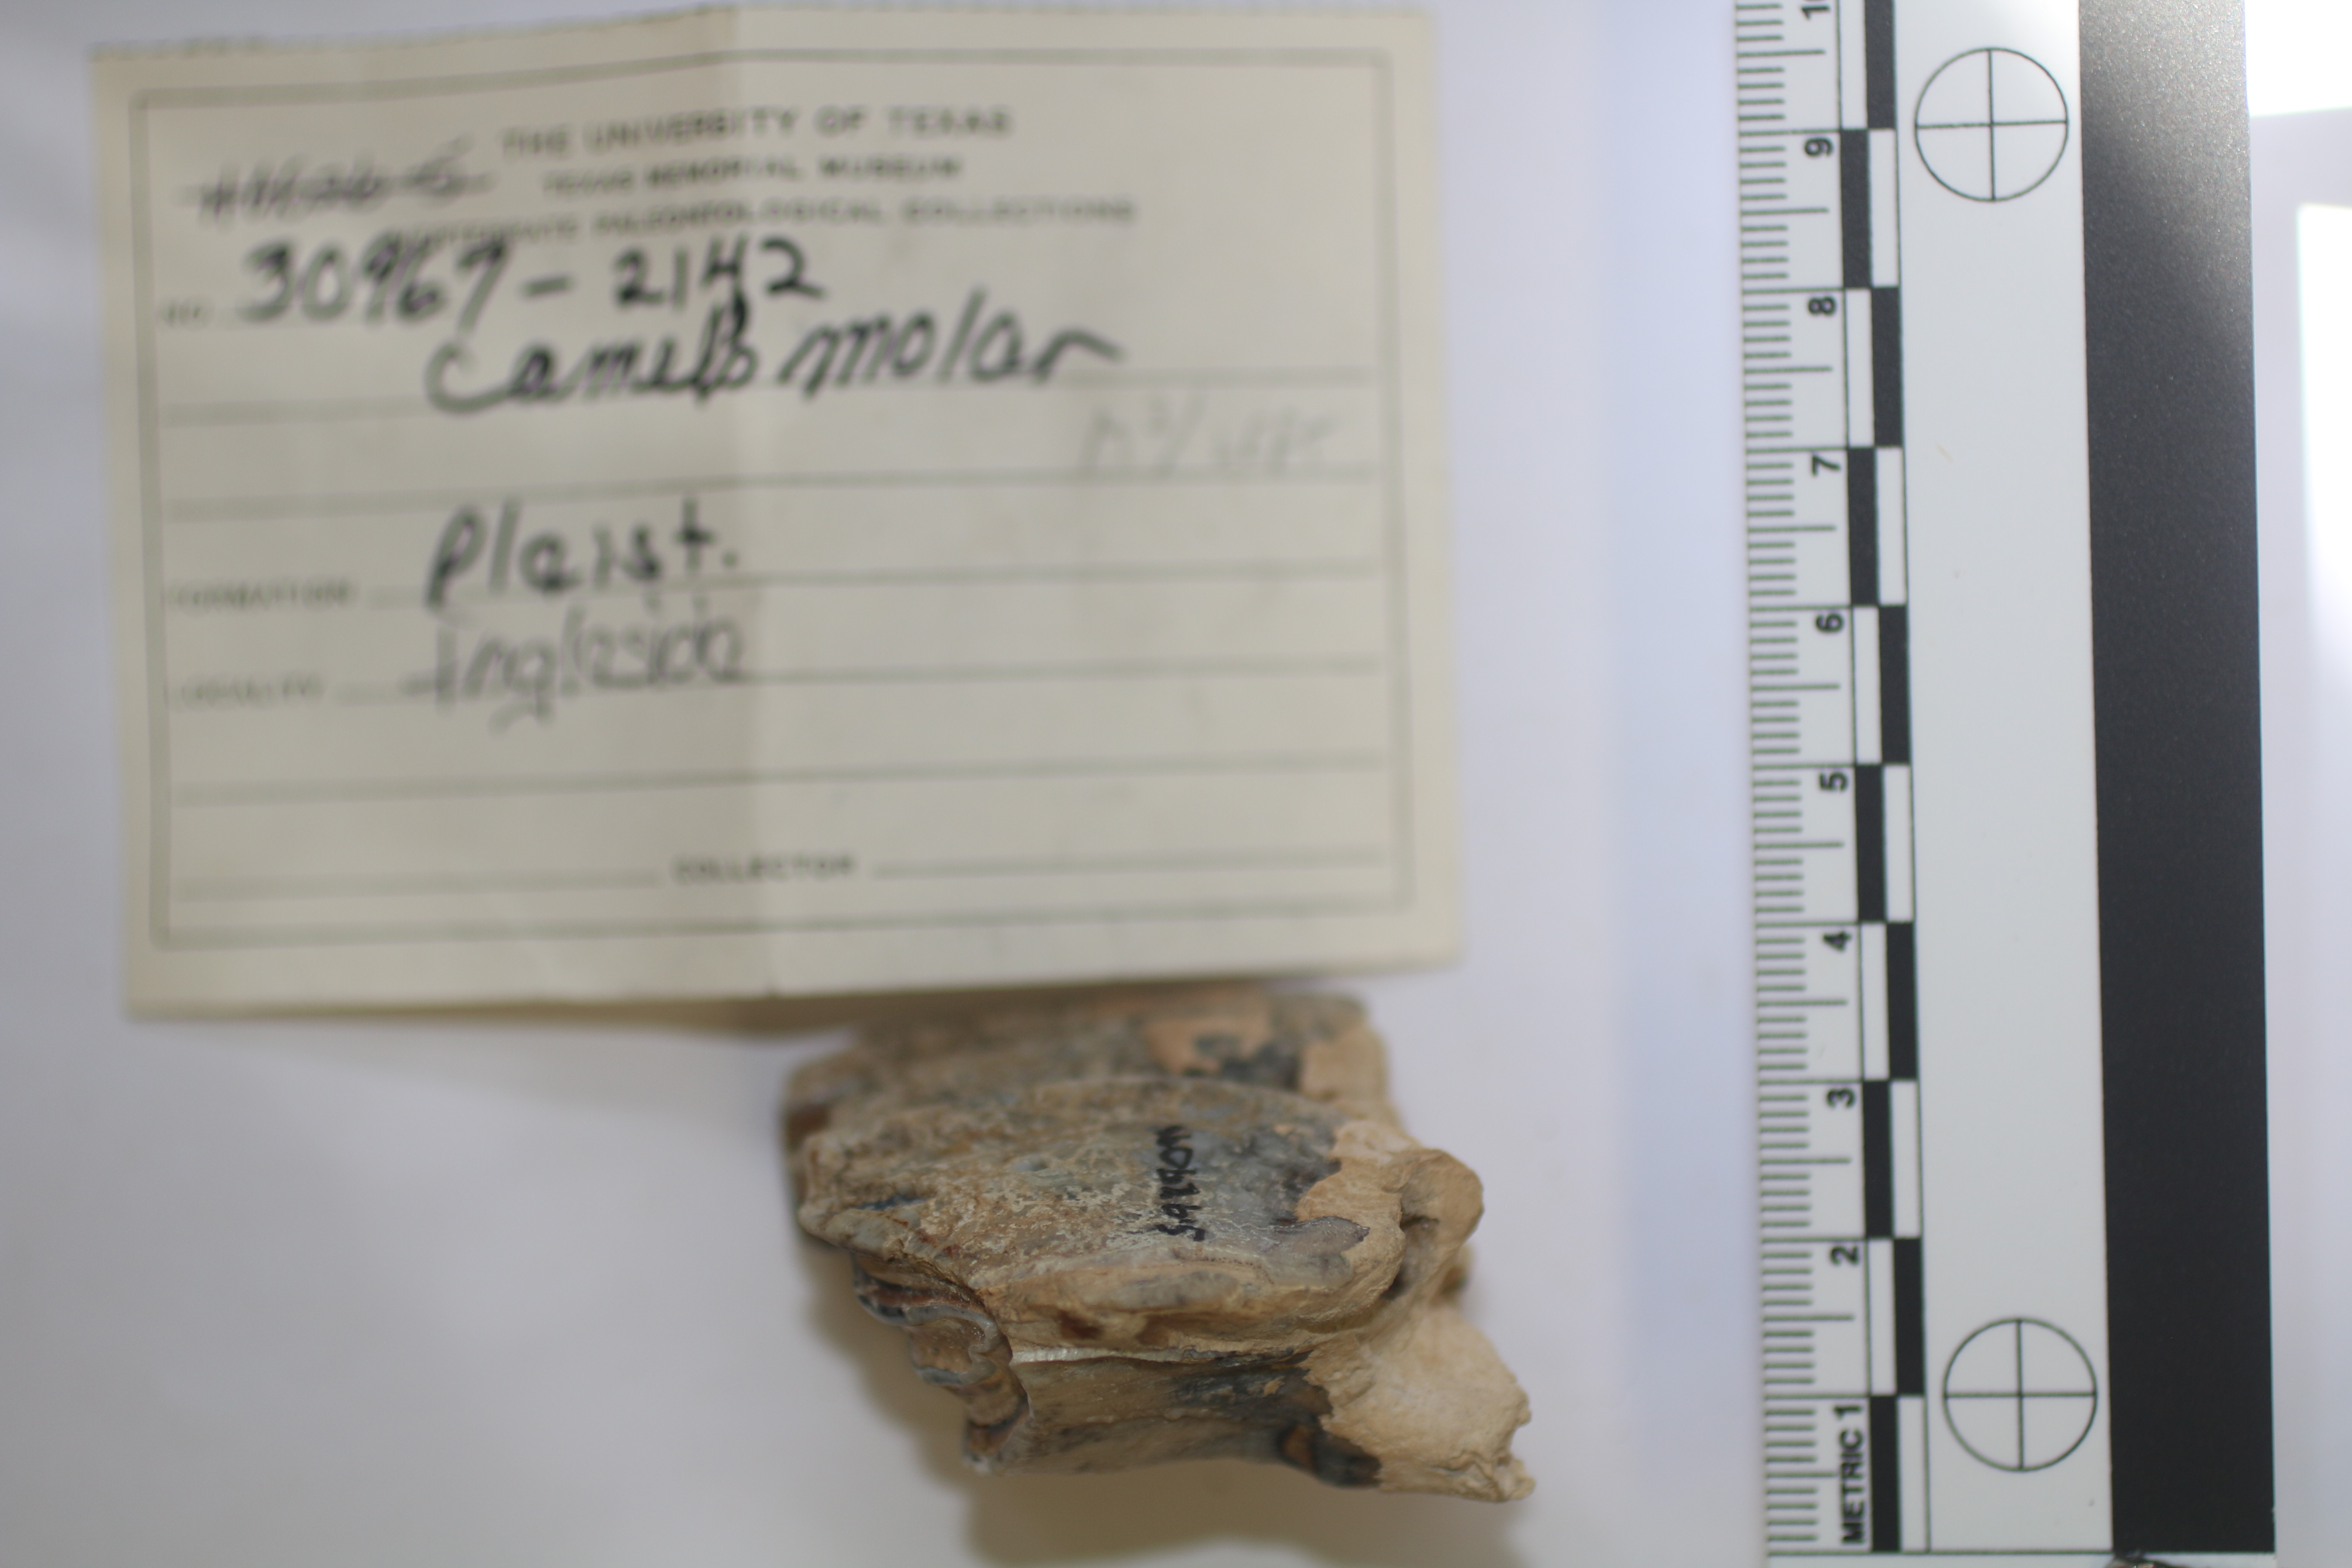 THE UNIVERSITY OF TEXAS
TEXAS MEMORIAL MUSEUM
VERTEBRATE PALEONTOLOGICAL COLLECTIONS
NO. 30967-2142
Camel molar
FORMATION Pleist.
LOCALITY Ingleside
COLLECTOR
10
9
8
7
6
5
4
3
2
METRIC 1